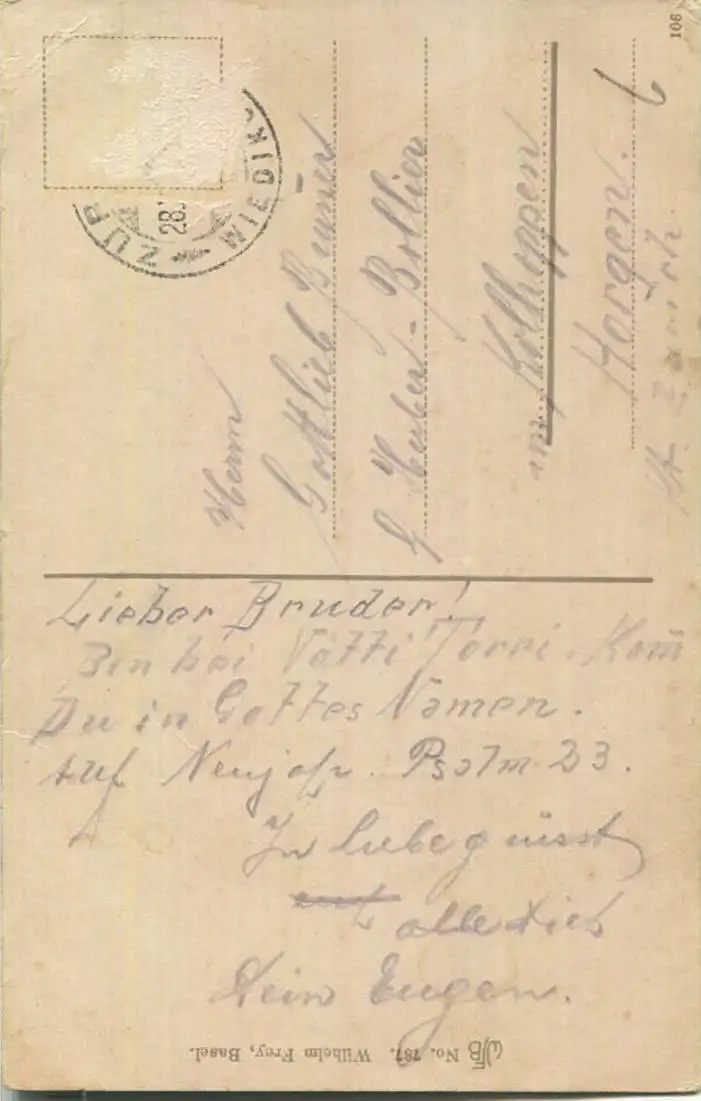 106
ZÜR WIEDIK
28.
Herrn
Gottlieb
Huber-Bollier
im Kolhoppen
Horgen.
Kt. Zürich.
Lieber Bruder!
Bin bei Vätti Torri. Kom
Du in Gottes Namen.
auf Neujahr. Psalm 23.
In Liebe grüsst
alle Dich
Dein Eugen.
WFB No. 787. Wilhelm Frey, Basel.